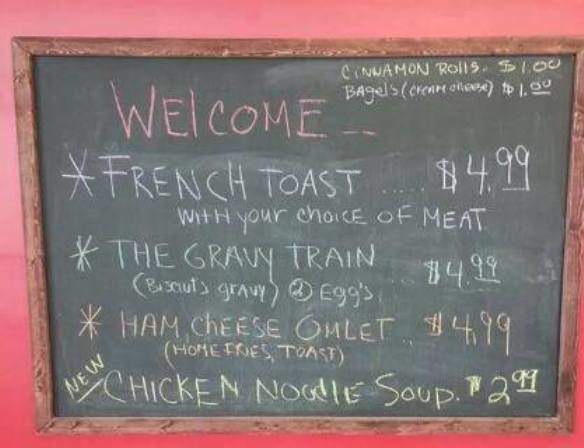 CINNAMON ROllS. $1.00
BAgel's (cream cheese) $1.00
WElCOME __
* FRENCH TOAST ..... $4.99
WITH your choicE OF MEAT
* THE GRAVY TRAIN .. $4.99
(Biscuit's gravy) ② Egg's
* HAM ChEESE OMLET .. $4.99
(HOMEFRIES, TOAST)
NEW CHICKEN NOOdlE SOUP. $2.99